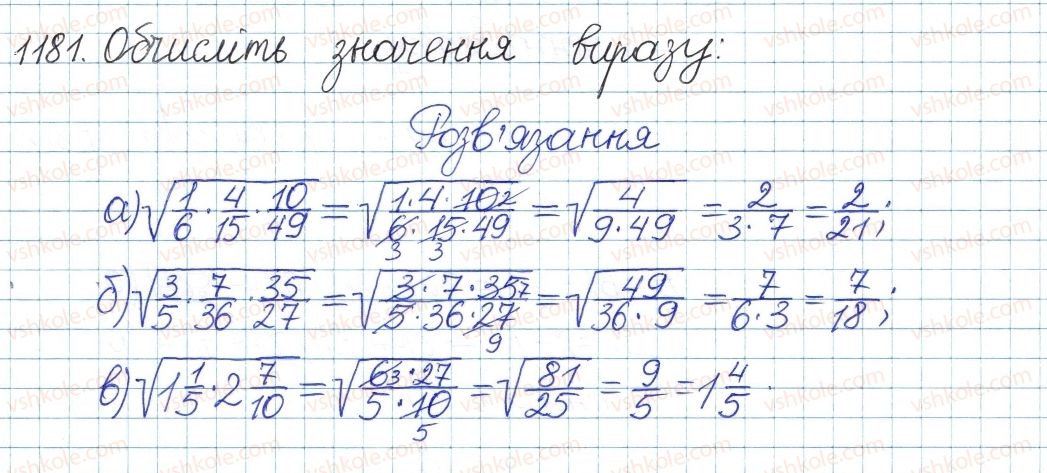 1181. Обчисліть значення виразу:
Розв'язання
а) √(1/6 · 4/15 · 10/49) = √(1·4·10 2/6·15·49 3 3) = √(4/9·49) = 2/3·7 = 2/21;
б) √(3/5 · 7/36 · 35/27) = √(3·7·35 7/5·36·27 9) = √(49/36·9) = 7/6·3 = 7/18;
в) √(1 1/5 · 2 7/10) = √(6 3·27/5·10 5) = √(81/25) = 9/5 = 1 4/5.